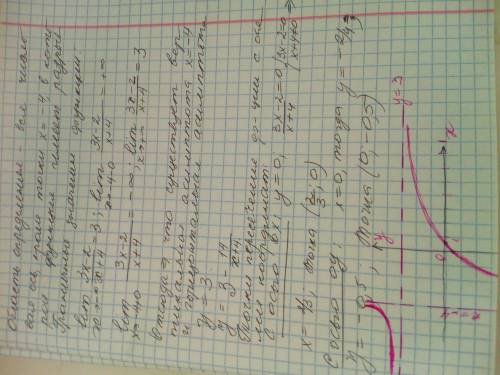 Область определения - все число
вая ось, кроме точки x=-4, в кото
рой функция имеет разрыв
Граничные значения функции
lim 3x-2/x+4 = 3; lim 3x-2/x+4 = +∞
lim 3x-2/x+4 = -∞; lim 3x-2/x+4 = 3
x→-4+0 x→+∞
Отсюда → что существует вер
тикальная асимптота x=-4
и горизонтальная асимптота
y=3
y=3-14/x+4
Точки пересечения фу-ции с ося
ми координат
С осью ox: y=0; 3x-2/x+4=0 {3x-2=0 x+4≠0 ⇒
x=2/3; точка (2/3; 0)
С осью оу: x=0, тогда y=-2/4;
y=-0,5; точка (0; -0,5)
y=3
y
x
0
1
x=-4